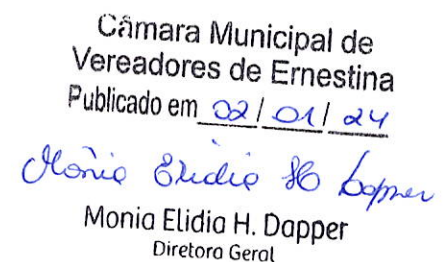 Câmara Municipal de
Vereadores de Ernestina
Publicado em 02/01/24
Mônia Elidia H Dapper
Monia Elidia H. Dapper
Diretora Geral